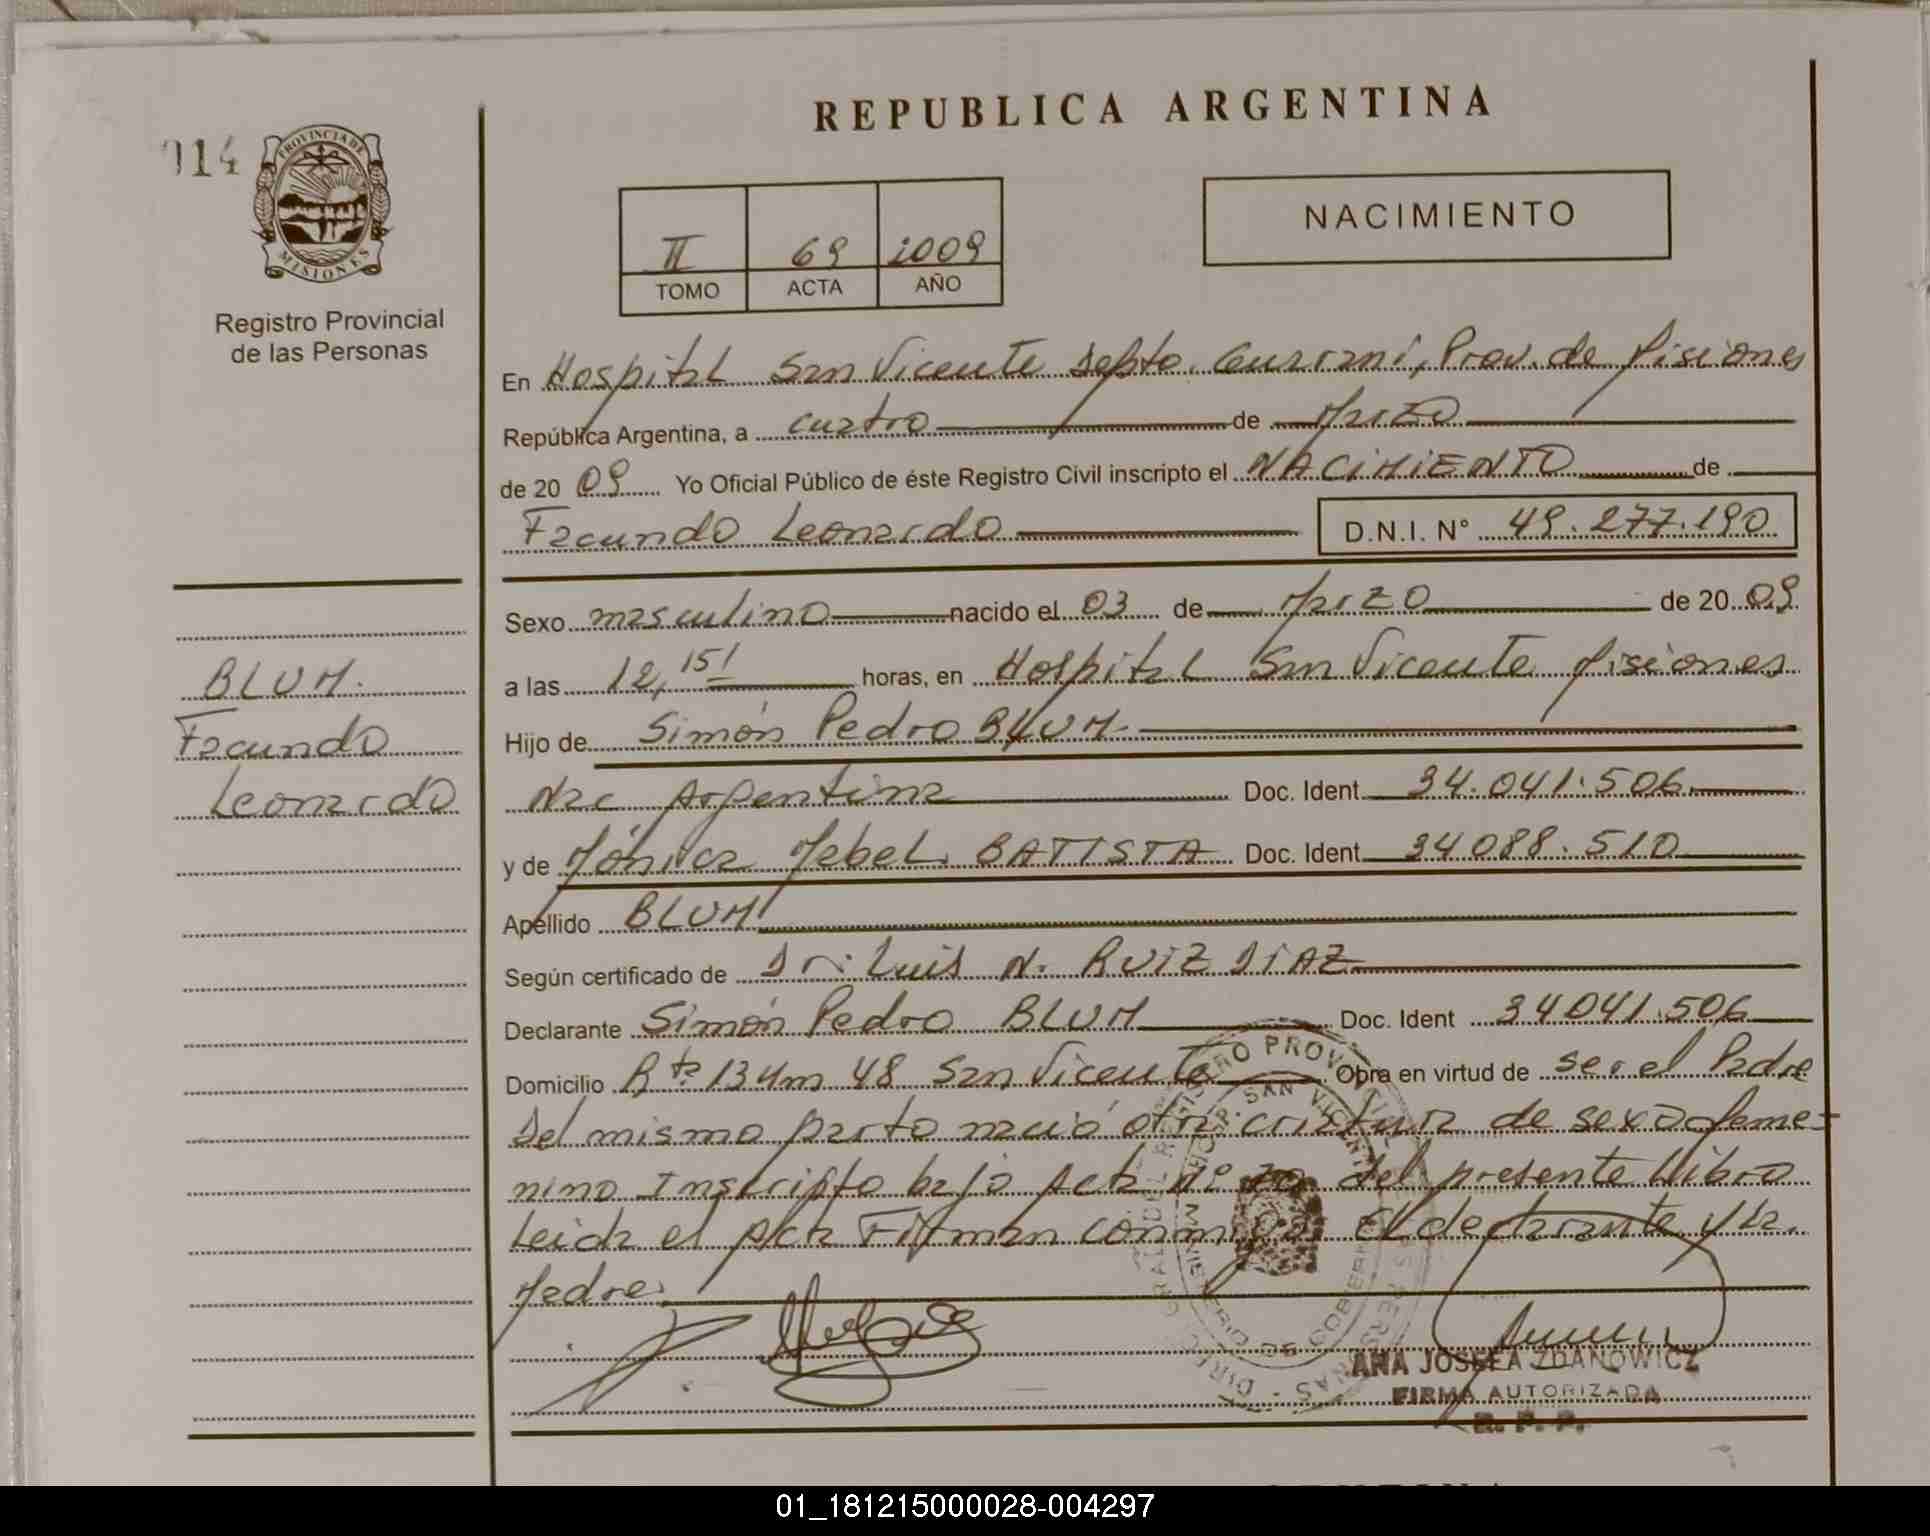 REPUBLICA ARGENTINA
014
PROVINCIA DE
MISIONES
Registro Provincial
de las Personas
II 69 2009
TOMO ACTA AÑO
NACIMIENTO
En Hospital San Vicente Depto. Guaraní, Prov. de Misiones
República Argentina, a cuatro de Marzo
de 2009 Yo Oficial Público de éste Registro Civil inscripto el NACIMIENTO de
Facundo Leonardo D.N.I. N° 49.277.190
Sexo masculino nacido el 03 de Marzo de 2009
a las 12,15' horas, en Hospital San Vicente Misiones
BLUM.
Facundo
Leonardo
Hijo de Simón Pedro BLUM
Nac Argentina Doc. Ident 34.041.506
y de Mónica Mabel BATISTA Doc. Ident 34088.510
Apellido BLUM
Según certificado de Dr: Luis N. RUIZ DIAZ
Declarante Simón Pedro BLUM Doc. Ident 34041.506
Domicilio Rta 13 Km 48 San Vicente Obra en virtud de ser el Padre
Del mismo parto nació otra criatura de sexo feme-
nino Inscripto bajo Acta N° 70 del presente Libro
Leida el Acta Firman conmigo El declarante y la
Madre.
ANA JOSEFA ZDANOWICZ
FIRMA AUTORIZADA
R. P. P.
01_181215000028-004297